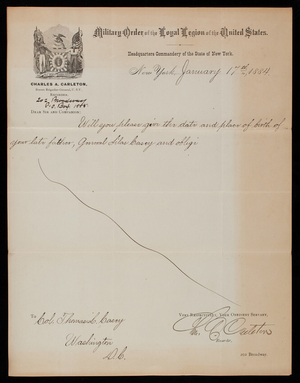 Military Order of the Loyal Legion of the United States.
Headquarters Commandery of the State of New York.
New York January 17th 1884
CHARLES A. CARLETON,
Brevet Brigadier General U.S.V.
RECORDER,
P.O. Box
DEAR SIR AND COMPANION:
Will you please give the date and place of birth of
your late father, General Silas Casey and oblige
VERY RESPECTFULLY, YOUR OBEDIENT SERVANT,
To
Col. Thomas L. Casey
Washington
D.C.
Chas. A. Carleton
Recorder.
BROADWAY